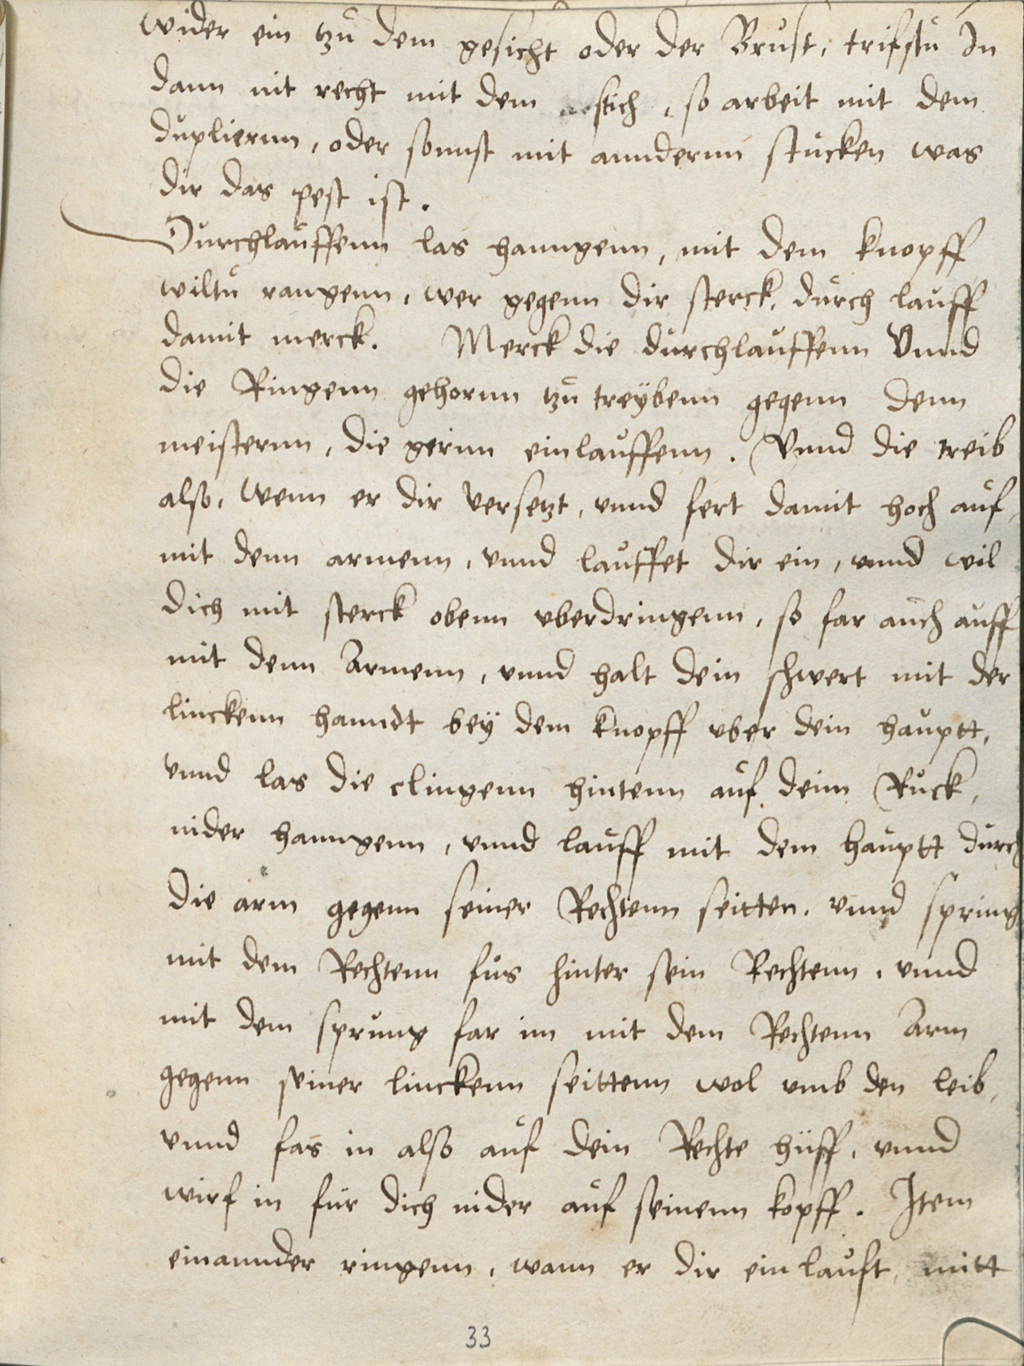 wider ein tzu dem gesicht oder der Brust, trifstu In
dann nit recht mit dem stich, so arbeit mit dem
dupliernn, oder sonnst mit anndernn stucken was
dir das pest ist.
Durchlauffenn las hanngenn, mit dem knopff
wiltu rangenn, wer gegenn dir sterck, durch lauff
damit merck. Merck die durchlauffenn Vnnd
die Ringenn gehornn tzu treÿbenn gegenn denn
meisternn, die gernn einlauffenn. Vnnd die treib
also, wenn er dir versetzt, vnnd fert damit hoch auf,
mit denn armenn, vnnd lauffet dir ein, vnnd wil
dich mit sterck obenn vberdringenn, so far auch auff
mit denn Armenn, vnnd halt dein schwert mit der
linckenn hanndt beÿ dem knopff vber dein hauptt,
vnnd las die clingenn hintenn auf deim Ruck,
nider hanngenn, vnnd lauff mit dem hauptt durch
die arm gegenn seiner Rechtenn seitten, vnnd spring
mit dem Rechtenn fus hinter sein Rechtenn, vnnd
mit dem sprung far im mit dem Rechtenn Arm
gegenn seiner linckenn seittenn wol vmb den leib,
vnnd fas in also auf dein Rechte hüff, vnnd
wirf in für dich nider auf seinenn kopff. Item
einannder ringenn, wann er dir ein lauft, mitt
33